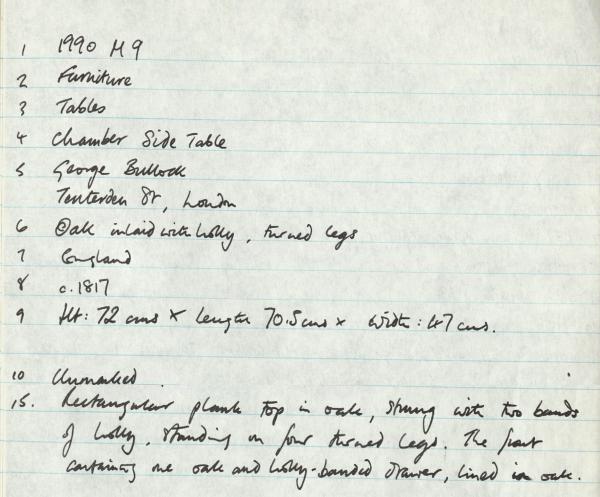 1 1990 M9
2 Furniture
3 Tables
4 Chamber Side Table
5 George Bullock
Tenterden St, London
6 Oak inlaid with holly, turned legs
7 England
8 c.1817
9 Ht: 72 cms × length 70.5 cms × width: 47 cms.
10 Unmarked.
15. Rectangular plank top in oak, strung with two bands
of holly, standing on four turned legs. The front
containing one oak and holly-banded drawer, lined in oak.